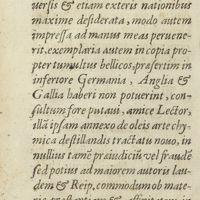 uersis & etiam exteris nationibus
maxime desiderata, modo autem
impressa ad manus meas peruene-
rit, exemplaria autem in copia prop
ter tumultus bellicos, præsertim in
inferiore Germania, Anglia &
Gallia haberi non potuerint, con-
sultum fore putaui, amice Lector,
illā ipsam annexo de oleis arte chy-
mica destillandis tractatu nouo, in
nullius tamē præiudiciū vel fraudē
sed potius ad maiorem autoris lau-
dem & Reip. commodum ob mate-